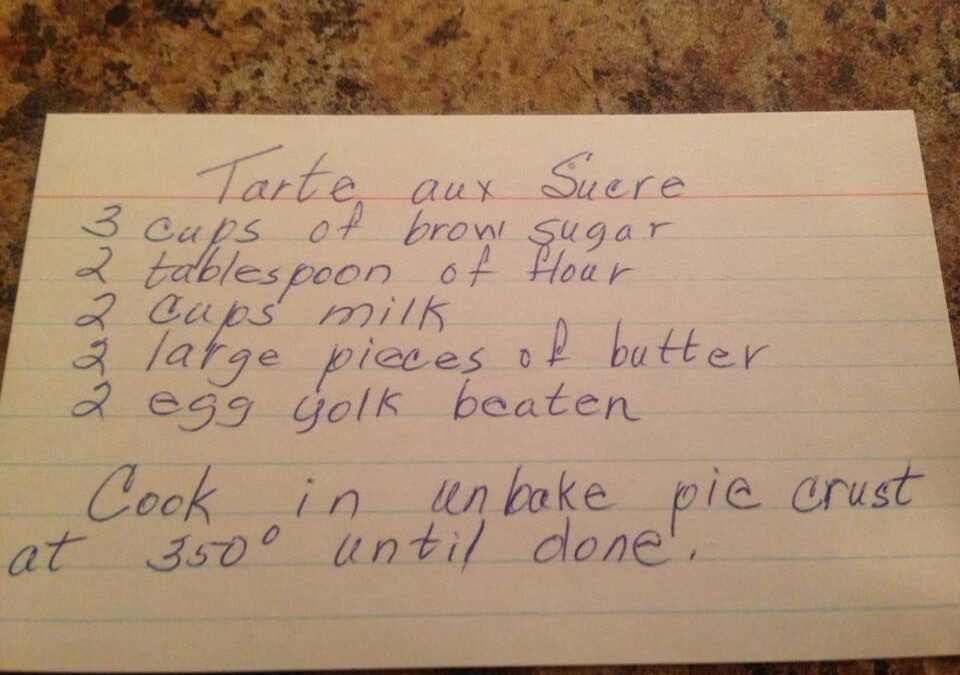 Tarte aux Sucre
3 cups of brow sugar
2 tablespoon of flour
2 cups milk
2 large pieces of butter
2 egg yolk beaten
Cook in unbake pie crust
at 350° until done.